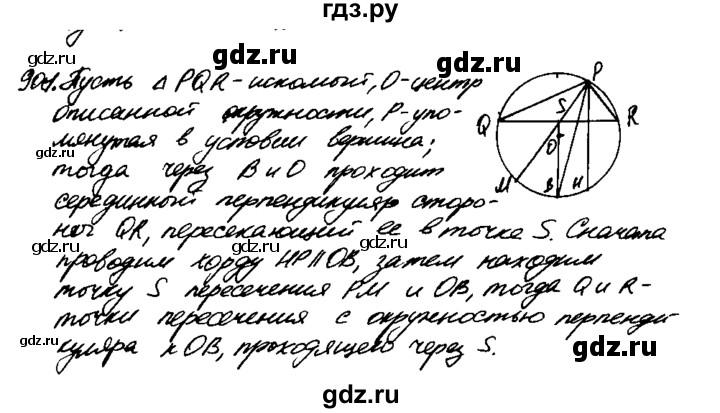 гдз.ру
904. Пусть △ PQR - искомый, O - центр
описанной окружности, P - упо-
мянутая в условии вершина;
тогда через B и O проходит
серединный перпендикуляр сторо-
ны QR, пересекающий ее в точке S. Сначала
проводим хорду HP || OB, затем находим
точку S пересечения PM и OB, тогда Q и R -
точки пересечения с окружностью перпенди-
куляра к OB, проходящего через S.
P
S
Q
R
O
M
B
H
gdz.ru
gdz.ru
gdz.ru
gdz.ru
gdz.ru
gdz.ru
gdz.ru
gdz.ru
gdz.ru
gdz.ru
gdz.ru
gdz.ru
gdz.ru